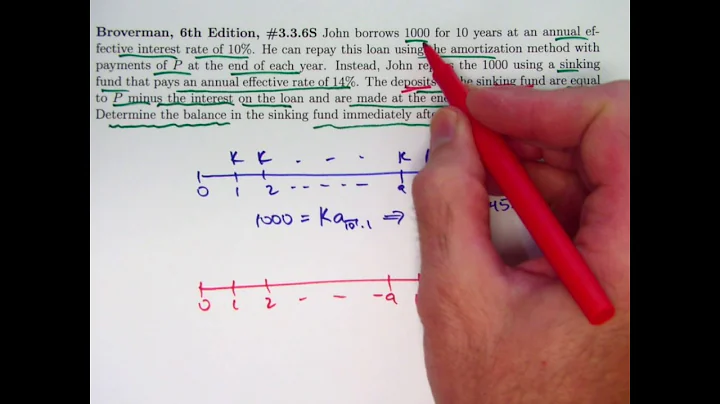 Broverman, 6th Edition, #3.3.6S John borrows 1000 for 10 years at an annual ef-
fective interest rate of 10%. He can repay this loan using the amortization method with
payments of P at the end of each year. Instead, John the 1000 using a sinking
fund that pays an annual effective rate of 14%. The deposits the sinking fund are equal
to P minus the interest on the loan and are made at the end
Determine the balance in the sinking fund immediately
K K . - - . K
0 1 2 - - - - - - 9
1000 = Ka10⌉.1 ⇒ 45
0 1 2 - - - 9